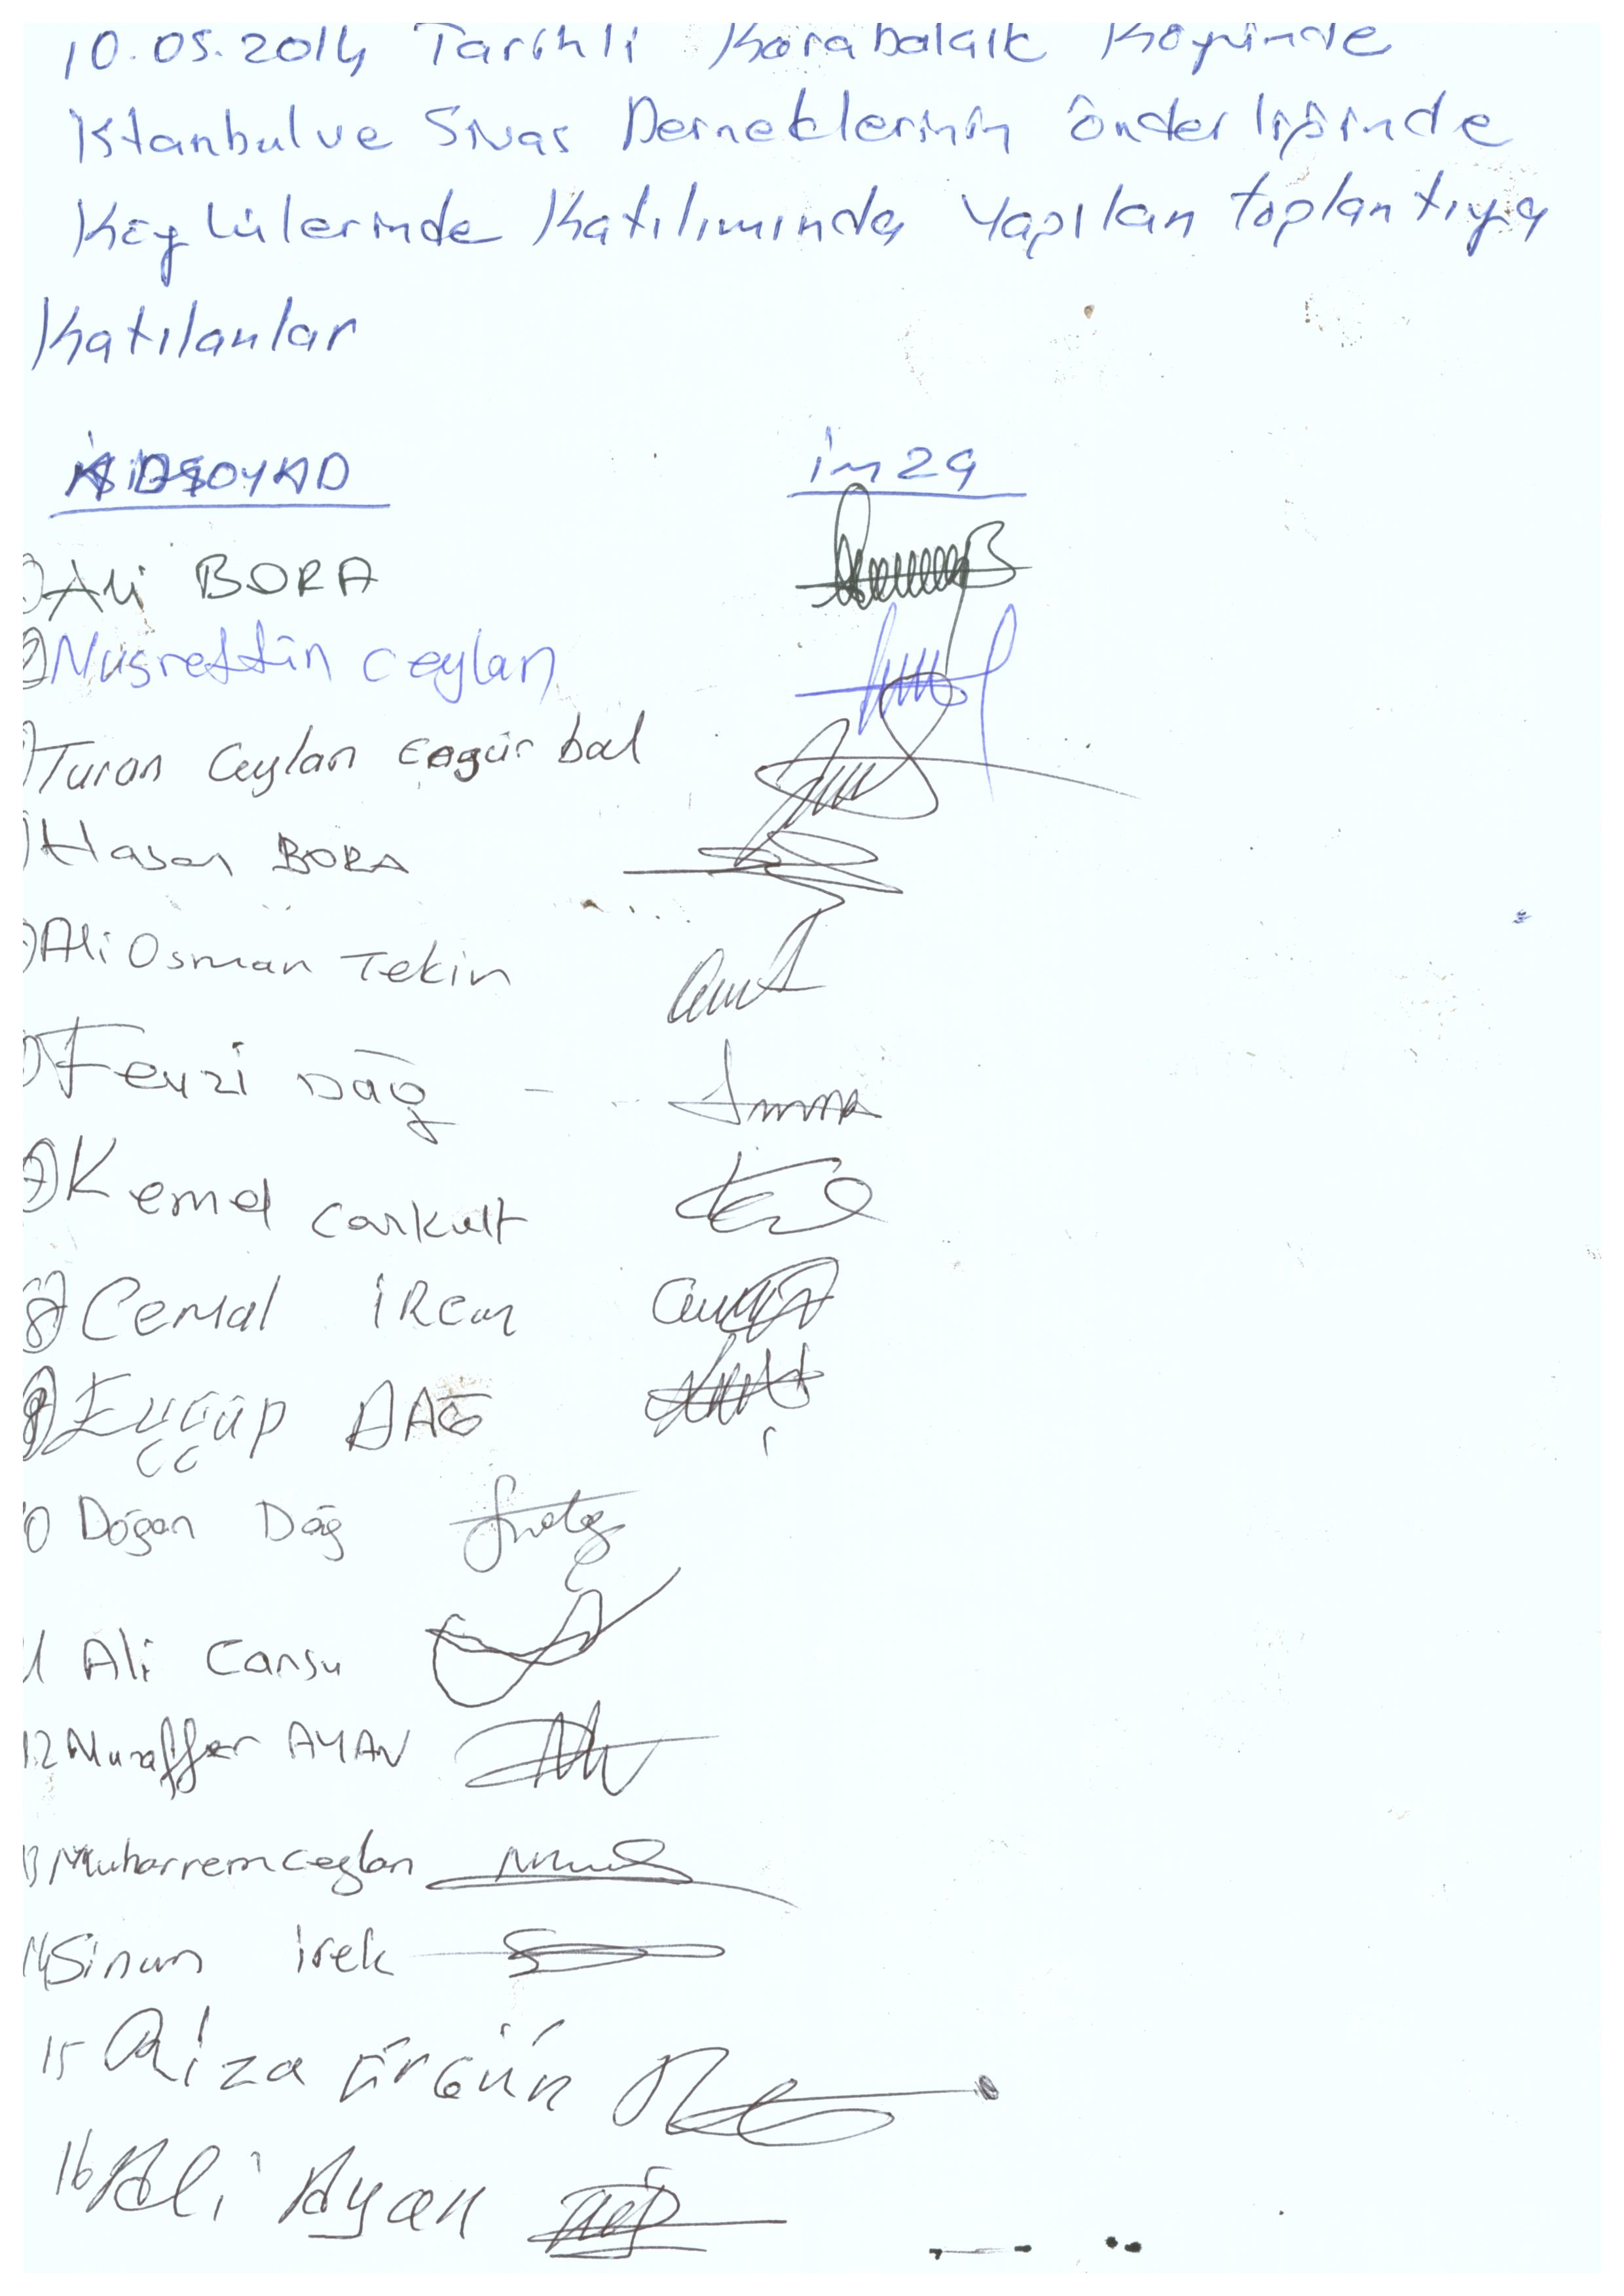 10.05.2014 Tarihli Karabalçık Köyünde
İstanbul ve Sivas Derneklerinin önderliğinde
Köylülerinde Katılımında Yapılan toplantıya
Katılanlar
SOYAD imza
Ali BORA
2) Nusrettin Ceylan
Turan Ceylan
) Hasan BORA
) Ali Osman Tekin
) Fevzi Dağ
7) Kemal Cankurt
8) Cemal İRem
9) Eyyüp DAĞ
0 Doğan Dağ
1 Ali Cansu
12 Muzaffer AYAN
13 Muharrem Ceylan
14 Sinan irek
15 Riza Ürgün
16 Ali Ayan